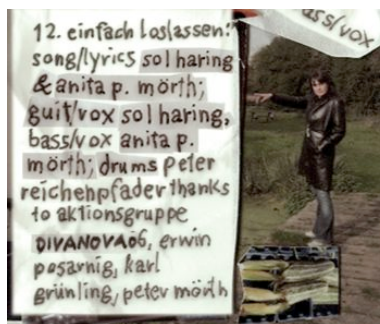 12. einfach loslassen:
song/lyrics sol haring
& anita p. mörth;
guit/vox sol haring,
bass/vox anita p.
mörth; drums peter
reichenpfader thanks
to aktionsgruppe
DIVANOVA06, erwin
posarnig, karl
grünling, peter mörth
ass/vox